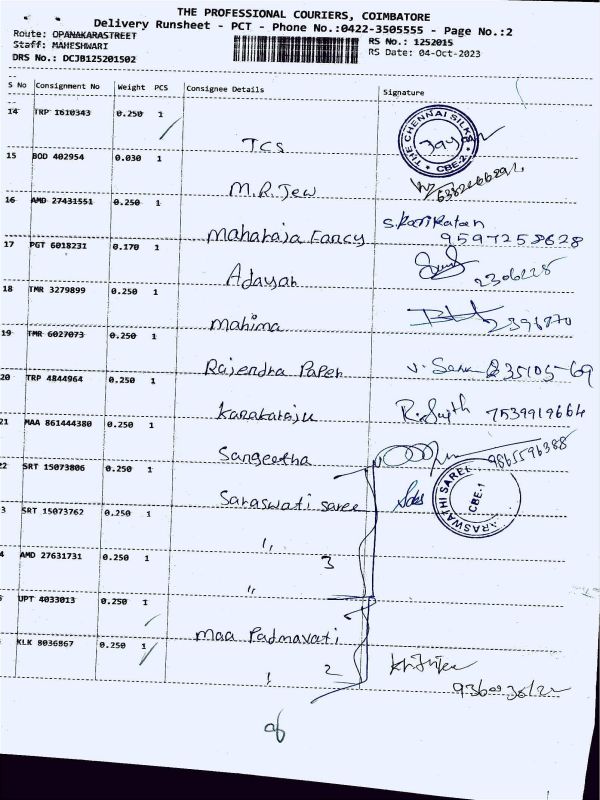 THE PROFESSIONAL COURIERS, COIMBATORE
Delivery Runsheet - PCT - Phone No.:0422-3505555 - Page No.:2
Route: OPANAKARASTREET
RS No.: 1252015
Staff: MAHESHWARI
RS Date: 04-Oct-2023
DRS No.: DCJB125201502
S No Consignment No Weight PCS Consignee Details Signature
14 TRP 1610343 0.250 1
TCS
THE CHENNAI SILKS
CBE-2
15 BOD 402954 0.030 1
M.R.Jew
16 AMD 27431551 0.250 1
Maharaja Fancy
9597258628
17 PGT 6018231 0.170 1
Adayah 2306228
18 TMR 3279899 0.250 1
Mahima 2396870
19 TMR 6027073 0.250 1
Rajendra Paper
20 TRP 4844964 0.250 1
Karakataju 7539919664
21 MAA 861444380 0.250 1
Sangeetha 9865596388
2 SRT 15073806 0.250 1
Saraswati saree
ARASWATHI SAREE
CBE-1
3 SRT 15073762 0.250 1
3
4 AMD 27631731 0.250 1
UPT 4033013 0.250 1
Maa Padmavati
KLK 8036867 0.250 1
2